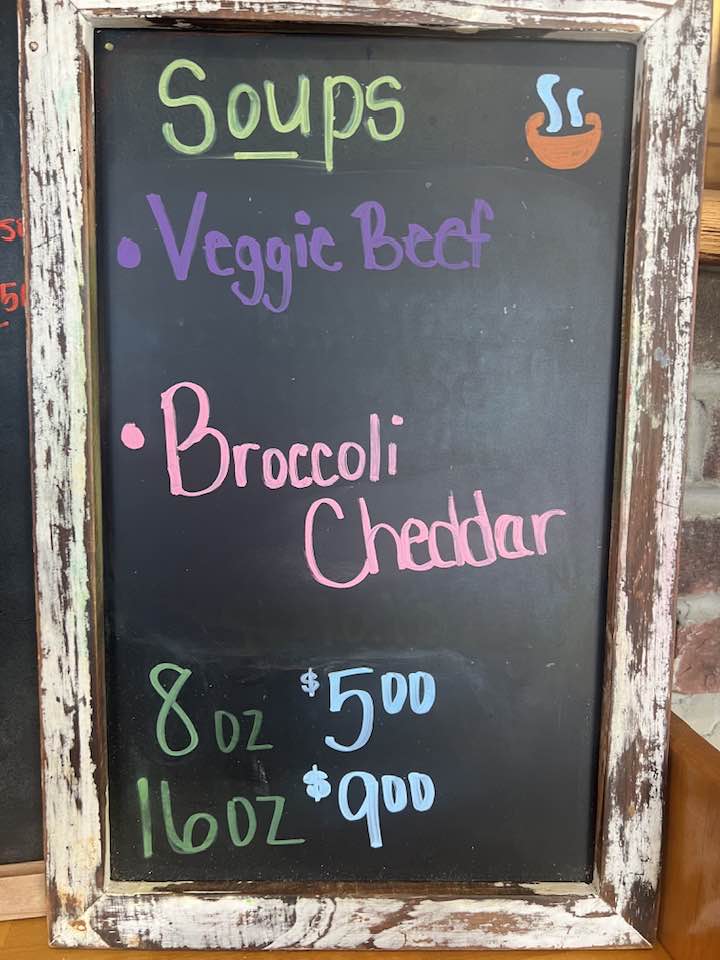 Soups
• Veggie Beef
• Broccoli
Cheddar
8 oz $5.00
16 oz $9.00